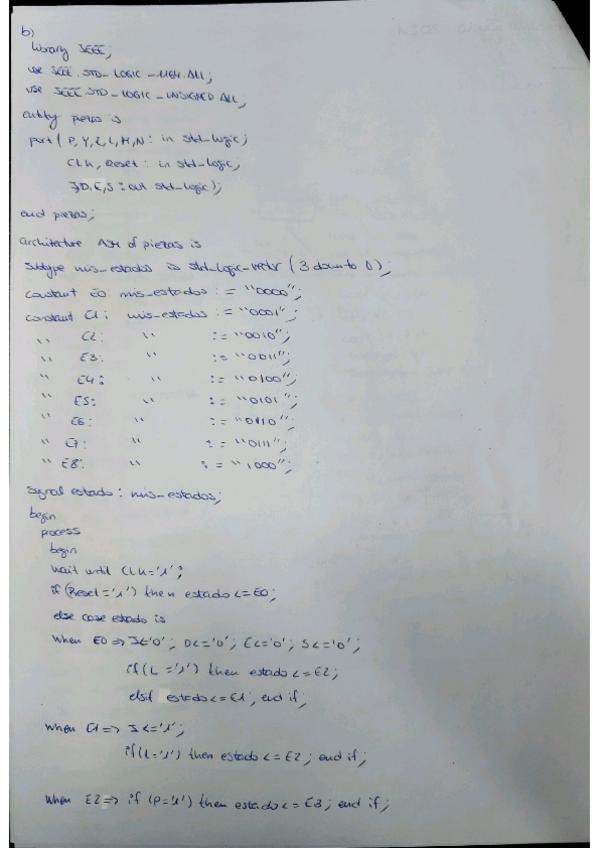 b)
library IEEE;
use IEEE.STD_LOGIC_1164.ALL;
use IEEE.STD_LOGIC_UNSIGNED.ALL;
entity piezas is
port ( P,Y,Z,L,M,N: in std_logic;
CLK, Reset: in std_logic;
I,D,E,S: out std_logic);
end piezas;
architecture ASM of piezas is
Subtype mis_estados is std_logic_vector (3 downto 0);
constant E0: mis_estados := "0000";
constant E1: mis_estados := "0001";
" E2: " := "0010";
" E3: " := "0011";
" E4: " := "0100";
" E5: " := "0101";
" E6: " := "0110";
" E7: " := "0111";
" E8: " := "1000";
signal estado: mis_estados;
begin
process
begin
wait until CLK='1';
if (Reset='1') then estado <= E0;
else case estado is
When E0 => I<='0'; D<='0'; E<='0'; S<='0';
if (L='1') then estado <= E2;
elsif estado <= E1; end if;
When E1 => I<='1';
if (L='1') then estado <= E2; end if;
When E2 => if (P='1') then estado <= E3; end if;